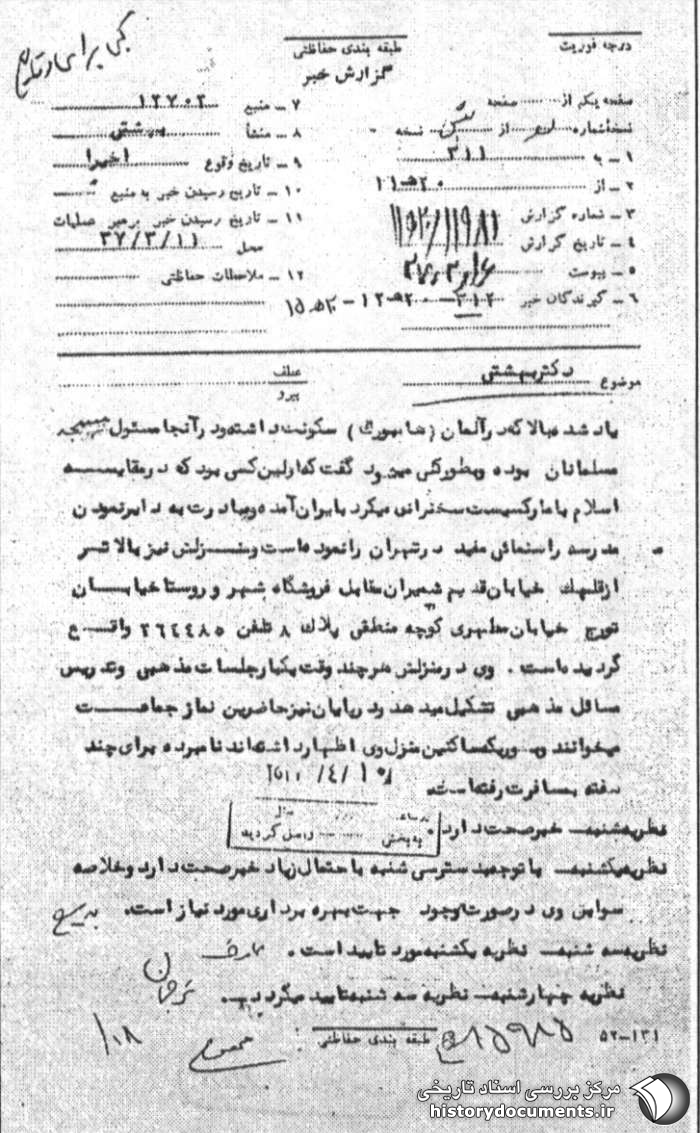 درجه فوریت
طبقه بندی حفاظتی
گزارش خبر
صفحه یکم از صفحه
نسخه شماره از نسخه
۱ ـ به ۳۱۱
۲ ـ از ۲۰ ﻫ ۱۱
۳ ـ شماره گزارش
۴ ـ تاریخ گزارش
۵ ـ پیوست
۶ ـ گیرندگان خبر ۳۱۲
۷ ـ منبع ۱۲۷۰۲
۸ ـ منشأ بهشتی
۹ ـ تاریخ وقوع اخیرا
۱۰ ـ تاریخ رسیدن خبر به منبع
۱۱ ـ تاریخ رسیدن خبر برهبر عملیات
محل ۳۷/۳/۱۱
۱۲ ـ ملاحظات حفاظتی
موضوع دکتر بهشتی
عطف
پیرو
یاد شده بالا که در آلمان (هامبورگ) سکونت داشته و در آنجا مسئول
مسلمانان بوده و بطوریکه میگفت که اولین کسی بود که در مقایسه
اسلام با مارکسیست سخنرانی میکرد بایران آمده و مبادرت به دایر نمودن
مدرسه راهنمائی مفید در تهران را نموده است و منزلش نیز بالاتر
از قلهک خیابان قدیم شمیران مقابل فروشگاه شهر و روستا خیابان
تورج خیابان مطهری کوچه منطقی پلاک ۸ تلفن ۲۶۴۴۸۵ واقع
گردیده است . وی در منزلش هر چند وقت یکبار جلسات مذهبی و تدریس
مسائل مذهبی تشکیل میدهد و در پایان نیز حاضرین نماز جماعت
میخوانند و بطوریکه ساکنین منزل وی اظهار داشته اند نامبرده برای چند
هفته بمسافرت رفته است.
نظریه شنبه ـ خبر صحت دارد .
به بخش واصل گردید
نظریه یکشنبه ـ با توجه به دسترسی شنبه باحتمال زیاد خبر صحت دارد و خلاصه
سوابق وی در صورت وجود جهت بهره برداری مورد نیاز است.
نظریه سه شنبه ـ نظریه یکشنبه مورد تایید است .
نظریه چهارشنبه ـ نظریه سه شنبه تایید میگردد .
طبقه بندی حفاظتی
۵۲ـ۱۳۱
مرکز بررسی اسناد تاریخی
historydocuments.ir